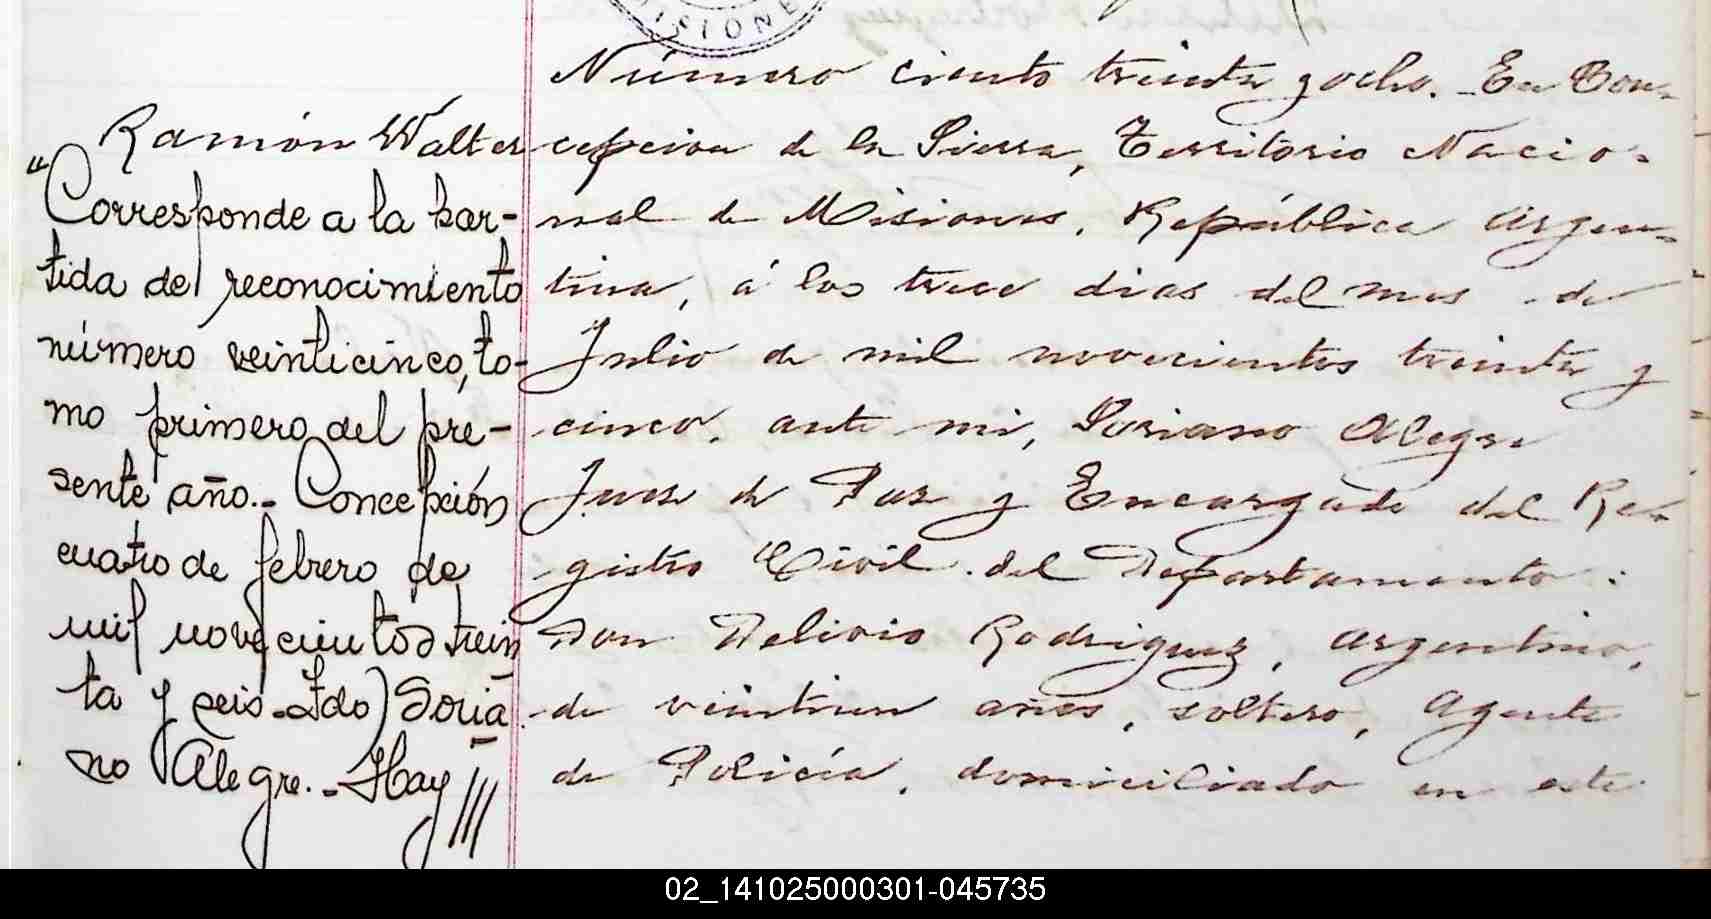 MISIONE
Ramón Walter
"Corresponde a la par-
tida de reconocimiento
número veinticinco, to-
mo primero del pre-
sente año.- Concepción
cuatro de febrero de
mil novecientos trein
ta y seis.- Fdo) Soria
no Alegre.- Hay ///
Número ciento treinta y ocho. - En Con-
cepcion de la Sierra, Territorio Nacio-
nal de Misiones, República Argen-
tina, á los trece dias del mes de
Julio de mil novecientos treinta y
cinco, ante mi, Soriano Alegre
Juez de Paz y Encargado del Re-
gistro Civil del Departamento:
Don Delivio Rodriguez, argentino,
de veintiun años, soltero, Agente
de Policía, domiciliado en este
02_141025000301-045735